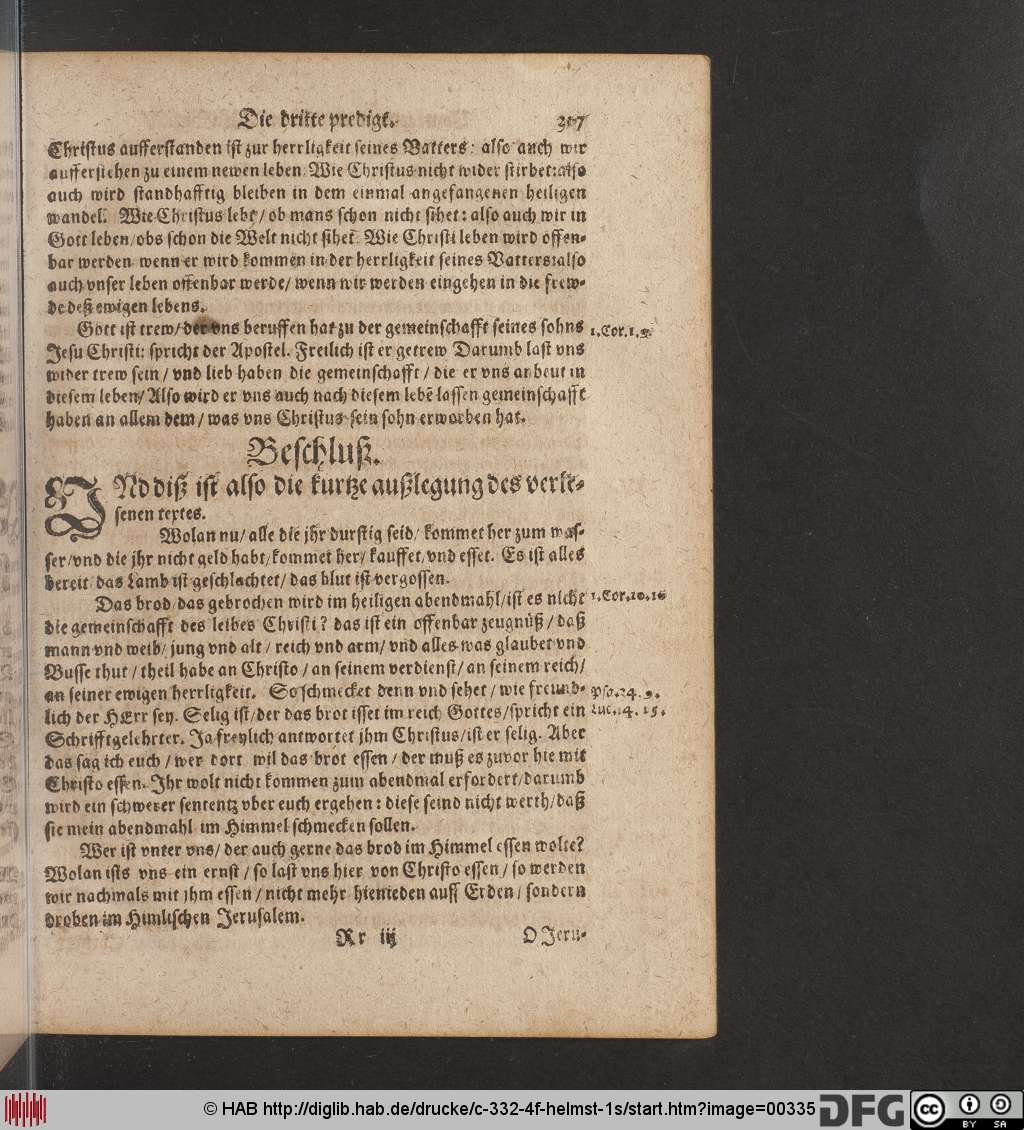 Die dritte predigt. 317
Christus aufferstanden ist zur herrligkeit seines Vatters: also auch wir
aufferstehen zu einem newen leben. Wie Christus nicht wider stirbet: also
auch wird standhafftig bleiben in dem einmal angefangenen heiligen
wandel. Wie Christus lebt / ob mans schon nicht sihet: also auch wir in
Gott leben / obs schon die Welt nicht sihet. Wie Christi leben wird offen-
bar werden wenn er wird kommen in der herrligkeit seines Vatters: also
auch vnser leben offenbar werde / wenn wir werden eingehen in die frew-
de deß ewigen lebens.
Gott ist trew / der vns beruffen hat zu der gemeinschafft seines sohns 1. Cor. 1, 9.
Jesu Christi: spricht der Apostel. Freilich ist er getrew Darumb last vns
wider trew sein / vnd lieb haben die gemeinschafft / die er vns anbeut in
diesem leben / Also wird er vns auch nach diesem lebē lassen gemeinschafft
haben an allem dem / was vns Christus sein sohn erworben hat.
Beschluß.
VNd diß ist also die kurtze außlegung des verle-
senen textes.
Wolan nu / alle die jhr durstig seid / kommet her zum was-
ser / vnd die jhr nicht geld habt / kommet her / kauffet / vnd esset. Es ist alles
bereit / das Lamb ist geschlachtet / das blut ist vergossen.
Das brod / das gebrochen wird im heiligen abendmahl / ist es nicht 1. Cor. 10. 16
die gemeinschafft des leibes Christi? das ist ein offenbar zeugnüß / daß
mann vnd weib / jung vnd alt / reich vnd arm / vnd alles was glaubet vnd
Busse thut / theil habe an Christo / an seinem verdienst / an seinem reich /
an seiner ewigen herrligkeit. So schmecket denn vnd sehet / wie freund- Psa. 34. 9.
lich der HErr sey. Selig ist / der das brot isset im reich Gottes / spricht ein Luc. 14. 15.
Schrifftgelehrter. Ja freylich antwortet jhm Christus / ist er selig. Aber
das sag ich euch / wer dort wil das brot essen / der muß es zuvor hie mit
Christo essen. Ihr wolt nicht kommen zum abendmal erfordert / darumb
wird ein schwerer sententz vber euch ergehen: diese seind nicht werth / daß
sie mein abendmahl im Himmel schmecken sollen.
Wer ist vnter vns / der auch gerne das brod im Himmel essen wolte?
Wolan ists vns ein ernst / so last vns hier von Christo essen / so werden
wir nachmals mit jhm essen / nicht mehr hienieden auff Erden / sondern
droben im Himlischen Jerusalem.
Rr iij O Jeru-
© HAB http://diglib.hab.de/drucke/c-332-4f-helmst-1s/start.htm?image=00335 DFG cc BY SA